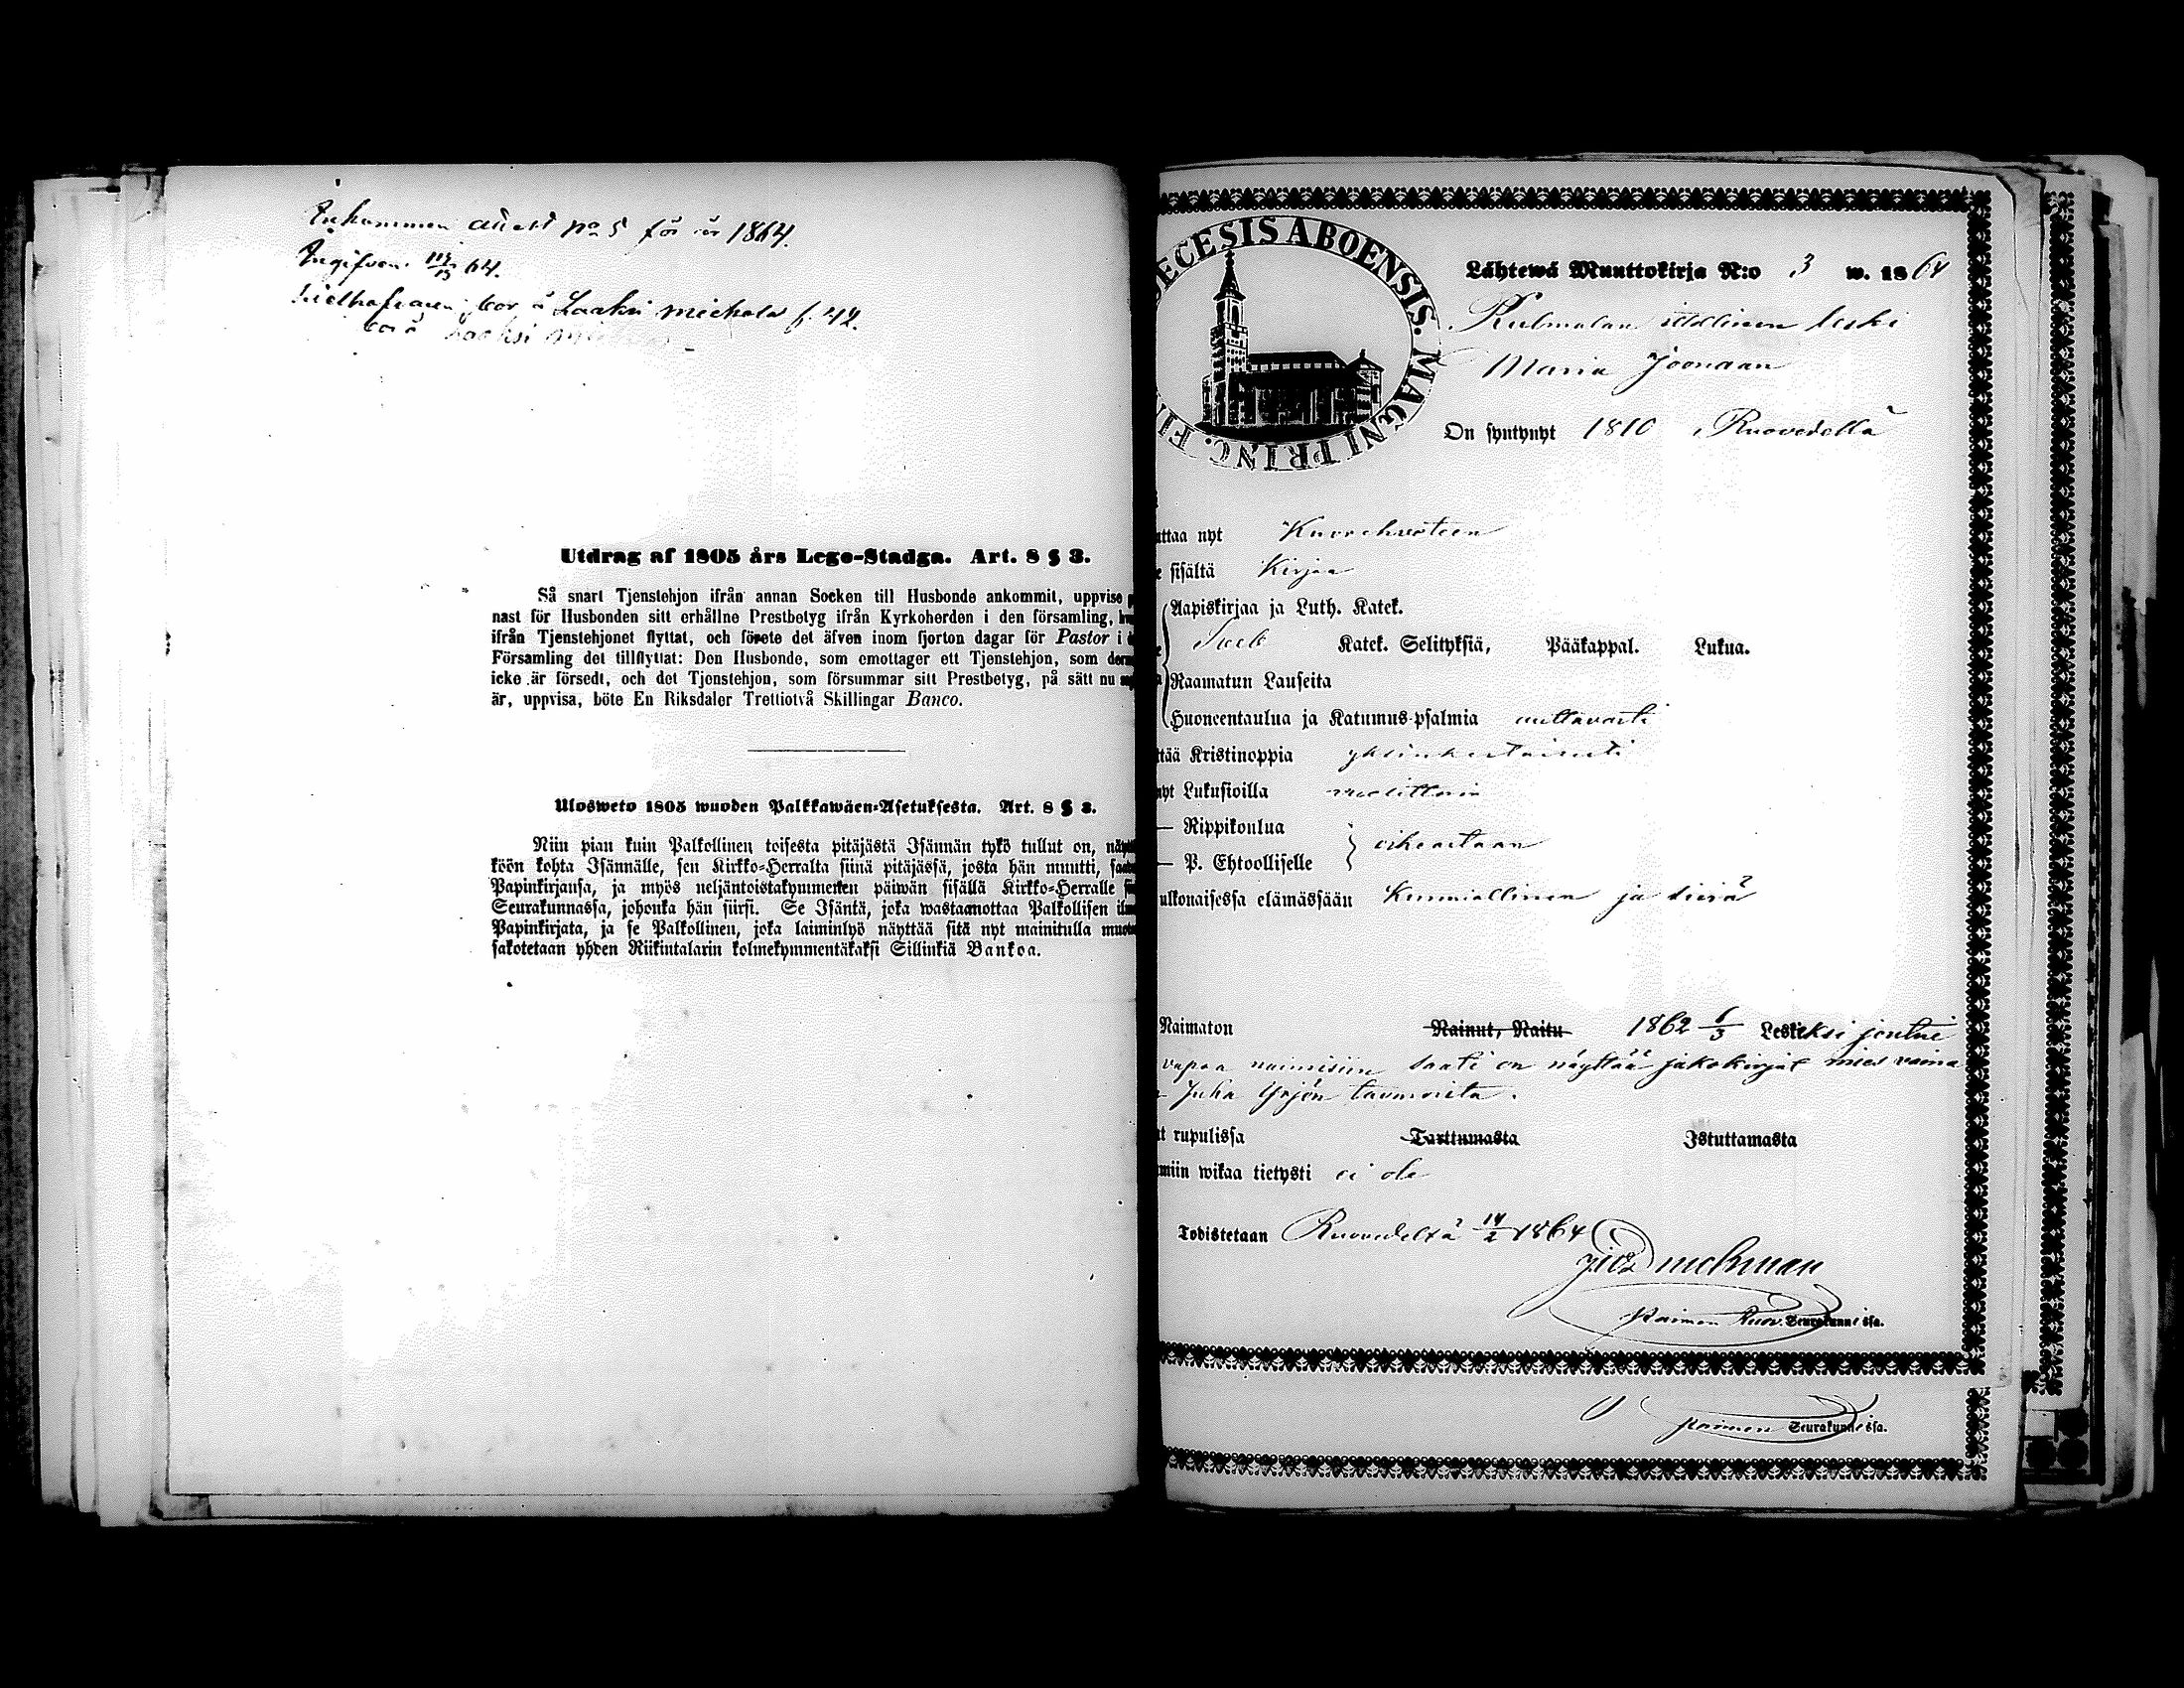 Inkommen attest No 5 för år 1864.
Ingifven 64.
bor å Laaksi Michola f. 42.
bor å Laaksi
Utdrag af 1805 års Lego-Stadga. Art. 8 § 3.
Så snart Tjenstehjon ifrån annan Socken till Husbonde ankommit, uppvise
nast för Husbonden sitt erhållne Prestbetyg ifrån Kyrkoherden i den församling,
ifrån Tjenstehjonet flyttat, och förete det äfven inom fjorton dagar för Pastor i
Församling det tillflyttat: Den Husbonde, som emottager ett Tjenstehjon, som
icke är försedt, och det Tjenstehjon, som försummar sitt Prestbetyg, på sätt nu
är, uppvisa, böte En Riksdaler Trettiotvå Skillingar Banco.
Ulosweto 1805 wuoden Palkkawäen-Asetuksesta. Art. 8 § 3.
Niin pian kuin Palkollinen toisesta pitäjästä Isännän tykö tullut on,
köön kohta Isännälle, sen Kirkko-Herralta siinä pitäjässä, josta hän muutti,
Papinkirjansa, ja myös neljäntoistakymmenen päiwän sisällä Kirkko-Herralle
Seurakunnassa, johonka hän siirsi. Se Isäntä, joka wastaanottaa Palkollisen
Papinkirjata, ja se Palkollinen, joka laiminlyö näyttää sitä nyt mainitulla
sakotetaan yhden Riikintalarin kolmekymmentäkaksi Sillinkiä Bankoa.
ECESIS ABOENSIS. MAGNI PRINC. FI
Lähtewä Muuttokirja N:o 3 w. 1864
itsellinen leski
Maria Joonaan
On syntynyt 1810 Ruovedellä
ttaa nyt Kuorehveteen
sisältä Kirjaa
Aapiskirjaa ja Luth. Katek.
Katek. Selityksiä, Pääkappal. Lukua.
Raamatun Lauseita
Huoneentaulua ja Katumus-psalmia auttavasti
ttää Kristinoppia yksinkertaisesti
nyt Lukusioilla vuosittain
— Rippikoulua
— P. Ehtoolliselle } oikeastaan
ulkonaisessa elämässään Kunniallinen ja siviä
Naimaton Nainut, Naitu 1862 6/3 Leskeksi joutui
vapaa naimisiin saati on näyttää jakokirjat mies vaina
Juha Yrjön tavaroista.
t rupulissa Tarttumasta Istuttamasta
miin wikaa tietysti ei ole
Todistetaan Ruovedeltä 14/2 1864
Paimen Ruov. Seurakunnissa.
Paimen Seurakunnissa.